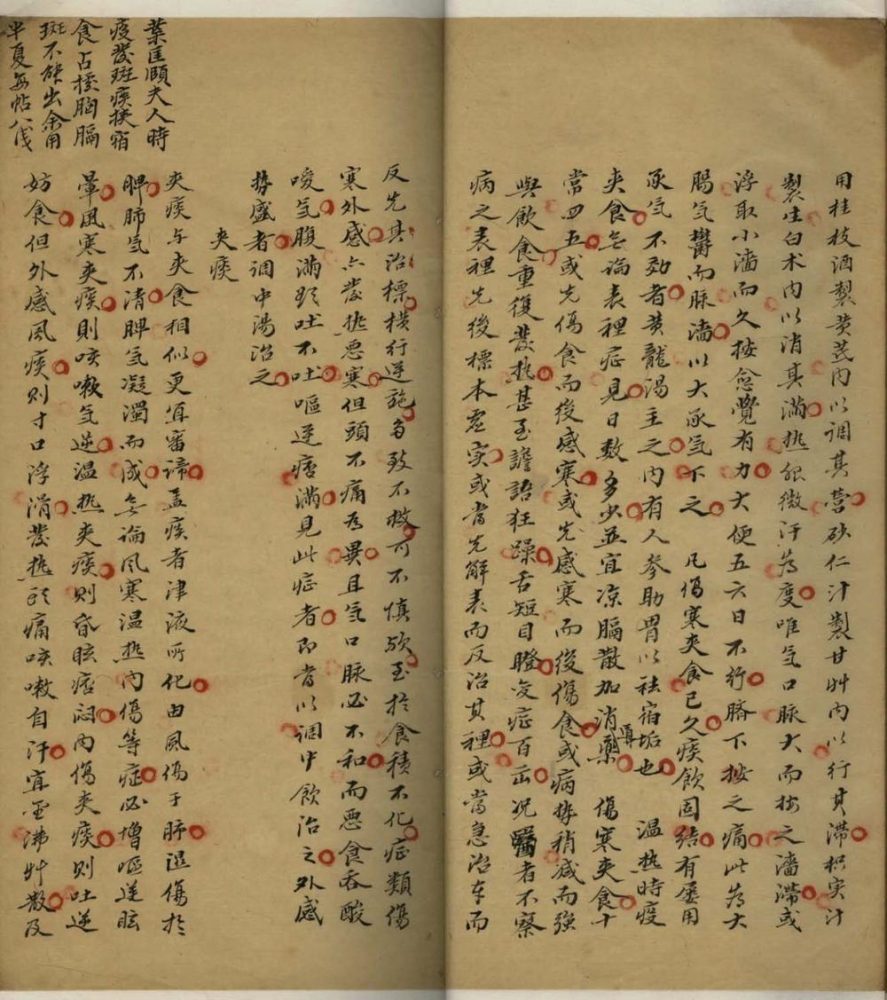 用桂枝酒製黄芪内以調其营砂仁汁製甘艸内以行其滞枳实汁
製生白术内以消其满热服微汗为度唯气口脉大而按之濇滞或
浮取小濇而久按愈覺有力大便五六日不行脐下按之痛此为大
腸气鬱而脉濇以大承气下之 凡伤寒夾食已久痰飲固结有屡用
承气不効者黄龍湯主之内有人參助胃以祛宿垢也 温热時疫
夾食无論表裡症見日数多少並宜凉膈散加消導藥 傷寒夾食十
常四五或先傷食而後感寒或先感寒而後傷食或病势稍减而强
與飲食重復發热甚至譫語狂躁舌短目瞪变症百出况醫者不察
病之表裡先後標本虚实或當先解表而反治其裡或當急治本而
反先其治標横行逆施多致不救可不慎欤至於食積不化症類傷
寒外感亦發热恶寒但頭不痛为異且气口脉必不和而恶食吞酸
噯气腹满欲吐不吐嘔逆痞满見此症者即當以調中飲治之外感
势盛者調中湯治之
夾痰
夾痰与夾食相似更宜審諦盖痰者津液所化由風傷于肺湿傷於
脾肺气不清脾气凝濁而成无論风寒温热内傷等症必增嘔逆眩
暈風寒夾痰則咳嗽气逆温热夾痰則昏眩痞闷内傷夾痰則吐逆
妨食但外感風痰則寸口浮滑發热头痛咳嗽自汗宜金沸艸散及
葉匡頤夫人時
疫發斑痰挾宿
食占據胸膈
斑不能出余用
半夏每帖八伐